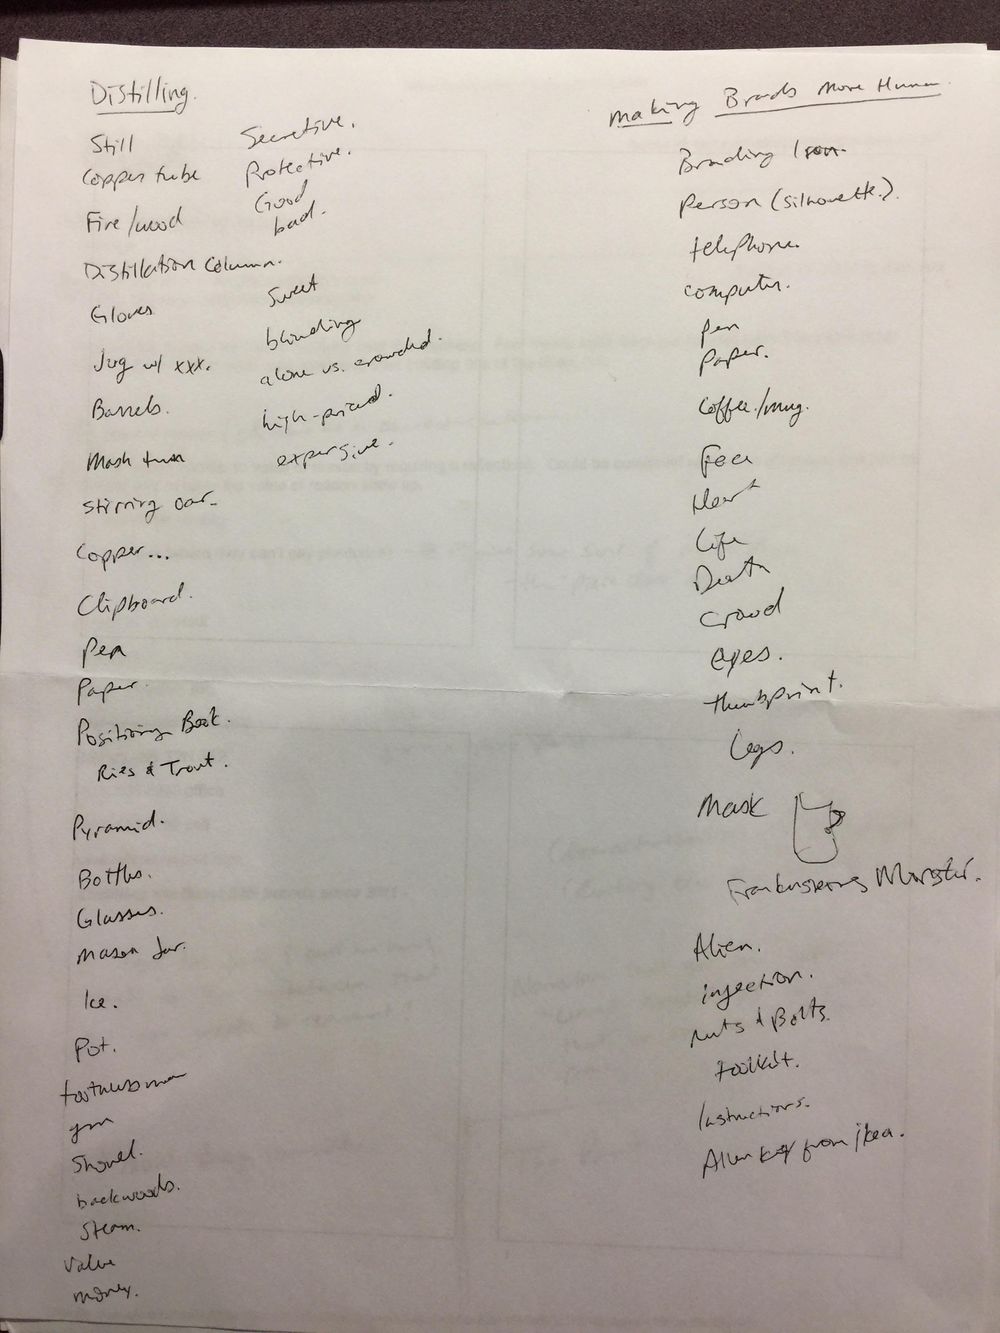 Distilling.
Still
Copper tube
Fire/wood
Distillation Column.
Gloves
Jug w/ xxx.
Barrels.
Mash tun
Stirring oar
Copper...
Clipboard.
Pen
Paper.
Positioning Book.
Ries & Trout.
Pyramid.
Bottles.
Glasses.
Mason Jar.
Ice.
Pot.
toothless man
gun
Shovel.
backwoods.
Steam.
Valve
money.
Secretive.
Protective.
Good
bad.
Sweet
blinding
alone vs. crowded.
high-priced.
expensive.
Making Brands More Human
Branding Iron.
Person (silhouette).
telephone.
computer.
Pen
Paper.
Coffee/mug.
Face
Heart
Life
Death
Crowd
eyes.
thumbprint.
Legs.
Mask
Frankenstein's Monster.
Alien.
injection.
nuts & Bolts.
toolkit.
Instructions.
Allen key from Ikea.